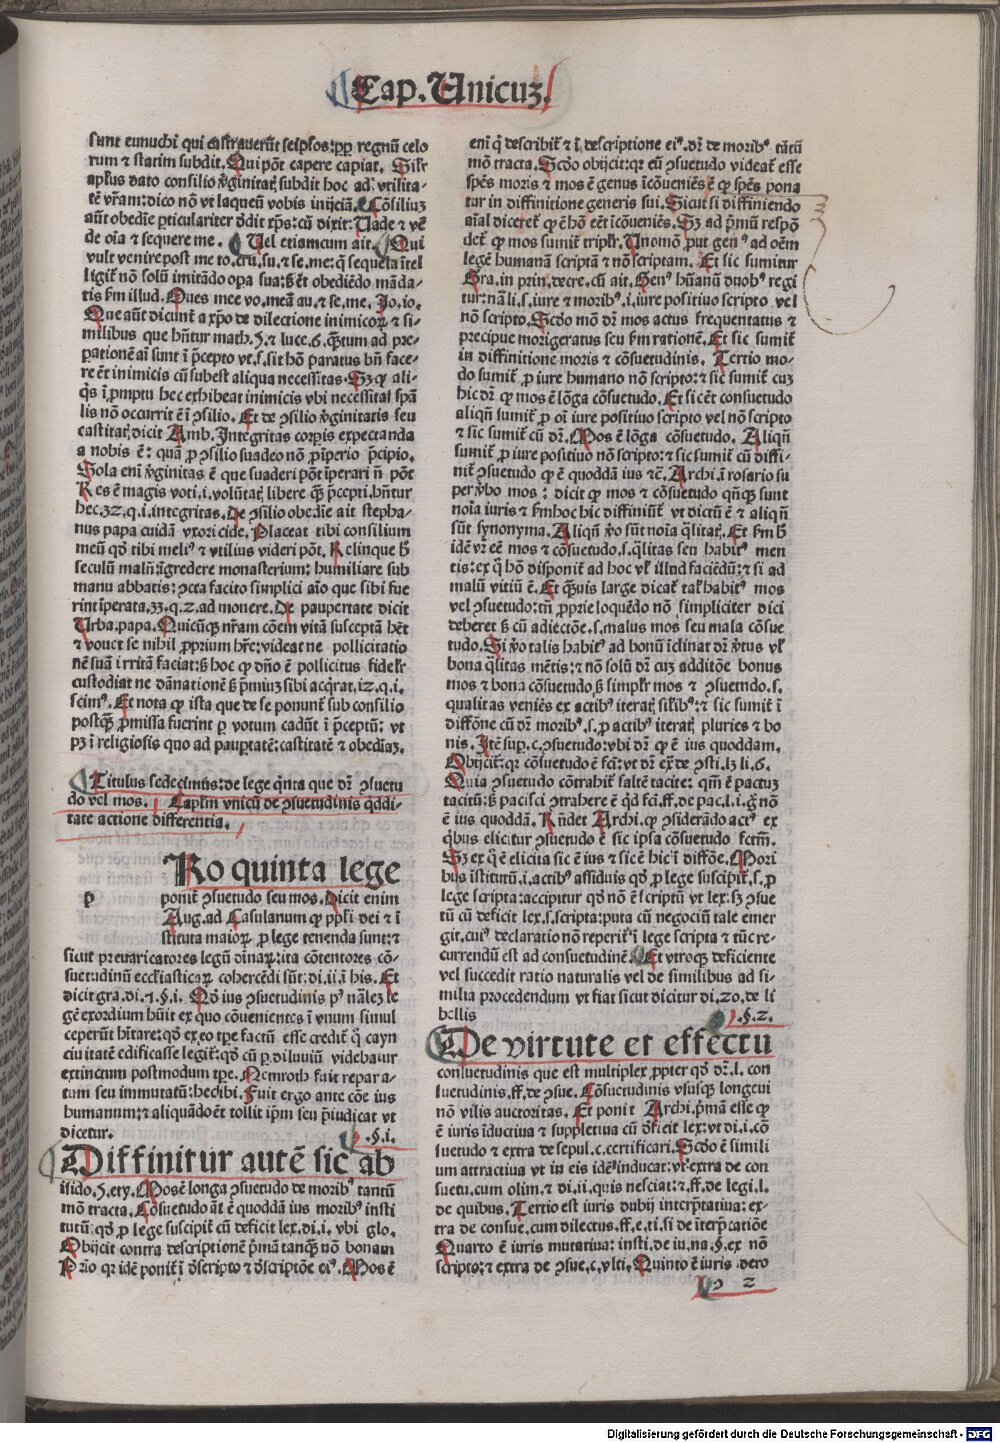 Cap. Unicuꝫ.
sunt eunuchi qui castrauerūt seipsos: ꝓpꝑ regnū celo
rum ⁊ statim subdit. Qui pōt capere capiat. Silr
apłus dato consilio ꝟginitatꝭ subdit hoc ad vtilita-
tē vr̄am: dico nō vt laqueū vobis inijciā. Cōsiliuꝫ
aūt obedīe ꝑticulariter ꝺdit xp̄s: cū dixit: Uade ⁊ vē
de oīa ⁊ sequere me. Uel etiamcum ait. Qui
vult venire post me to. cru. su. ⁊ se. me: q̄ sequela ītel
ligit̄ nō solū imitādo opa sua: ß ēt obediēdo māda-
tis ẜm illud. Oues mee vo. meā au. ⁊ se. me. Jo. io.
Que aūt dicunt̄ a xp̄o de dilectione inimicoꝝ ⁊ si-
milibus que hn̄tur math. 5. ⁊ luce. 6. q̄ꝫtum ad pre-
parationē aī sunt ī p̄cepto vt. s. sit hō paratus bn̄ face-
re ēt inimicis cū subest aliqua necessitas. Sꝫ ꝙ ali-
q̄s ī ꝓmptu hec exhibeat inimicis vbi necessitas spā
lis nō occurrit ē ī ꝯsilio. Et de ꝯsilio ꝟginitatis seu
castitatꝭ dicit Amb. Integritas corpis expectanda
a nobis ē: quā ꝓ ꝯsilio suadeo nō ꝓ īperio p̄cipio.
Sola enī ꝟginitas ē que suaderi pōt īperari n̄ pōt
Res ē magis voti. i. volūtatꝭ libere q̄ꝫ p̄cepti. hn̄tur
hec. 32. q. i. integritas. De ꝯsilio obedīe ait stepha-
nus papa cuidā vxoricide. Placeat tibi consilium
meū qd̄ tibi meliꝰ ⁊ vtilius videri pōt. Relinque ꝑ
seculū malū: īgredere monasterium: humiliare sub
manu abbatis: ꝯcta facito simplici aīo que sibi fue
rint īperata. 33. q. 2. ad monere. De paupertate dicit
Urba. papa. Quicūqꝫ nr̄am cōem vitā susceptā hēt
⁊ vouet se nihil ꝓprium hr̄e: videat ne pollicitatio
nē suā irritā faciat: ß hoc ꝙ dn̄o ē pollicitus fidelr̄
custodiat ne dānationē ß p̄miuꝫ sibi acq̄rat. iz. q. i.
scimꝰ. Et nota ꝙ ista que de se ponunt̄ sub consilio
postq̄ꝫ ꝓmissa fuerint ꝑ votum cadūt ī p̄ceptū: vt
pꝫ ī religiosis quo ad paupertatē: castitatē ⁊ obediāꝫ.
Titulus sedecimus: de lege q̄nta que dr̄ ꝯsuetu
do vel mos. Caplm vnicū de ꝯsuetudinis q̄ddi-
tate actione differentia.
p Ro quinta lege
ponit̄ ꝯsuetudo seu mos. Dicit enim
Aug. ad Casulanum ꝙ ppl̄i dei ⁊ ī
stituta maioꝝ ꝓ lege tenenda sunt: ⁊
sicut preuaricatores legū diuinaꝝ: ita cōtentores cō-
suetudinū eccłiasticaꝝ cohercēdi sūt: di. ii. ī his. Et
dicit gra. di. 1. §. i. Qd̄ ius ꝯsuetudinis pꝰ nālez le
gē exordium hūit ex quo cōuenientes ī vnum simul
ceperūt hītare: qd̄ ex eo tp̄e factū esse credit̄ q̄ cayn
ciuitatē edificasse legit̄: qd̄ cū ꝑ diluuiū videbatur
extinctum postmodum tp̄e. Nemroth fuit repara-
tum seu immutatū: hec ibi. Fuit ergo ante cōe ius
humanum: ⁊ aliquādo ēt tollit ip̄m seu p̄iudicat vt
dicetur. .§. i.
Diffinitur autē sic ab
isido. 5. ety. Mos ē longa ꝯsuetudo de moribꝰ tantū
mō tracta. Cōsuetudo aūt ē quoddā ius moribꝰ insti
tutū: qd̄ ꝓ lege suscipit̄ cū deficit lex. di. i. vbi glo.
Obijcit contra descriptionē p̄mā tanq̄ꝫ nō bonam
Prīo qꝛ idē ponit̄ ī ꝺscripto ⁊ ꝺscriptōe eiꝰ. Mos ē
enī q̄ describit̄ ⁊ ī descriptione eiꝰ. dr̄ de moribꝰ tātū
mō tracta. Scd̄o obijcit: qꝛ cū ꝯsuetudo videat̄ esse
spēs moris ⁊ mos ē genus īcōueniēs ē ꝙ spēs pona
tur in diffinitione generis sui. Sicut si diffiniendo
aīal diceret̄ ꝙ ē hō eēt īcōueniēs. Sꝫ ad p̄mū respō
det̄ ꝙ mos sumit̄ triplr̄. Unomō put genꝰ ad oēm
legē humanā scriptā ⁊ nō scriptam. Et sic sumitur
Gra. in prin. decre. cū ait. Genꝰ hūanū duobꝰ regi
tur: nāli. s. iure ⁊ moribꝰ. i. iure positiuo scripto vel
nō scripto. Scd̄o mō dr̄ mos actus frequentatus ⁊
precipue morigeratus seu ẜm rationē. Et sic sumit̄
in diffinitione moris ⁊ cōsuetudinis. Tertio mo-
do sumit̄ ꝓ iure humano nō scripto: ⁊ sic sumit̄ cuꝫ
hic dr̄ ꝙ mos ē lōga cōsuetudo. Et sic ēt consuetudo
aliqn̄ sumit̄ ꝓ oī iure positiuo scripto vel nō scripto
⁊ sic sumit̄ cū dr̄. Mos ē lōga cōsuetudo. Aliqn̄
sumit̄ ꝓ iure positiuo nō scripto: ⁊ sic sumit̄ cū diffi-
nit̄ ꝯsuetudo ꝙ ē quoddā ius ⁊c. Archi. ī rosario su
per ꝟbo mos: dicit ꝙ mos ⁊ cōsuetudo qn̄qꝫ sunt
noīa iuris ⁊ ẜm hoc hic diffiniūt̄ vt dictū ē ⁊ aliqn̄
sūt synonyma. Aliqn̄ ꝟo sūt noīa q̄litatꝭ. Et ẜm h̄
idē vr̄ eē mos ⁊ cōsuetudo. s. q̄litas seu habitꝰ men
tis: ex q̄ hō disponit̄ ad hoc vł illud faciēdū: ⁊ si ad
malū vitiū ē. Et q̄ꝫuis large dicat̄ talꝭ habitꝰ mos
vel ꝯsuetudo: tn̄ ꝓprie loquēdo nō simpliciter dici
deberet ß cū adiectōe. s. malus mos seu mala cōsue
tudo. Si ꝟo talis habitꝰ ad bonū īclinat dr̄ ꝟtus vł
bona q̄litas mētis: ⁊ nō solū dr̄ cuꝫ additōe bonus
mos ⁊ bona cōsuetudo ß simplr̄ mos ⁊ ꝯsuetudo. s.
qualitas veniēs ex actibꝰ iteratꝭ silibꝰ: ⁊ sic sumit̄ ī
diffōne cū dr̄ moribꝰ. s. ꝓ actibꝰ iteratꝭ pluries ⁊ bo
nis. Itē suꝑ. c. ꝯsuetudo: vbi dr̄ ꝙ ē ius quoddam.
Obijcit̄: qꝛ cōsuetudo ē fcī: vt dr̄ ex̄ de ꝯsti. lꝫ li. 6.
Quia ꝯsuetudo cōtrahit̄ saltē tacite: qm̄ ē pactuꝫ
tacitū: ß pacisci ꝯtrahere ē qd̄ fcī. ff. de pac. l. i. g̊ nō
ē ius quoddā. Rn̄det Archi. ꝙ ꝯsiderādo actꝰ ex
q̄bus elicitur ꝯsuetudo ē sic ipsa cōsuetudo fctm̄.
Sꝫ ex q̄ ē elicita sic ē ius ⁊ sic ē hic ī diffōe. Mori
bus īstitutū. i. actibꝰ assiduis qd̄ ꝓ lege suscipit̄. s. ꝓ
lege scripta: accipitur qd̄ nō ē scriptū vt lex: sꝫ ꝯsue
tū cū deficit lex. s. scripta: puta cū negociū tale emer
git. cuiꝰ declaratio nō reperit̄ ī lege scripta ⁊ tūc re-
currendū est ad consuetudinē. Et vtroqꝫ deficiente
vel succedit ratio naturalis vel de similibus ad si-
milia procedendum vt fiat sicut dicitur di. 20. de li
bellis .§. 2.
De virtute et effectu
consuetudinis que est multiplex ꝓpter qd̄ dr̄. l. con
suetudinis. ff. de ꝯsue. Cōsuetudinis vsusqꝫ longeui
nō vilis auctoritas. Et ponit Archi. p̄mā esse ꝙ
ē iuris īductiua ⁊ suppletiua cū ꝺficit lex: vt di. i. cō
suetudo ⁊ extra de sepul. c. certificari. Scd̄o ē simili
um attractiua vt in eis idē īducat: vt extra de con
suetu. cum olim. ⁊ di. ii. quis nesciat: ⁊. ff. de legi. l.
de quibus. Tertio est iuris dubij interp̄tatiua: ex-
tra de consue. cum dilectus. ff. e. ti. si de īterp̄catiōe
Quarto ē iuris mutatiua: insti. de iu. na. §. ex nō
scripto: ⁊ extra de ꝯsue. c. vlti. Quinto ē iuris dero
2
Digitalisierung gefördert durch die Deutsche Forschungsgemeinschaft - DFG